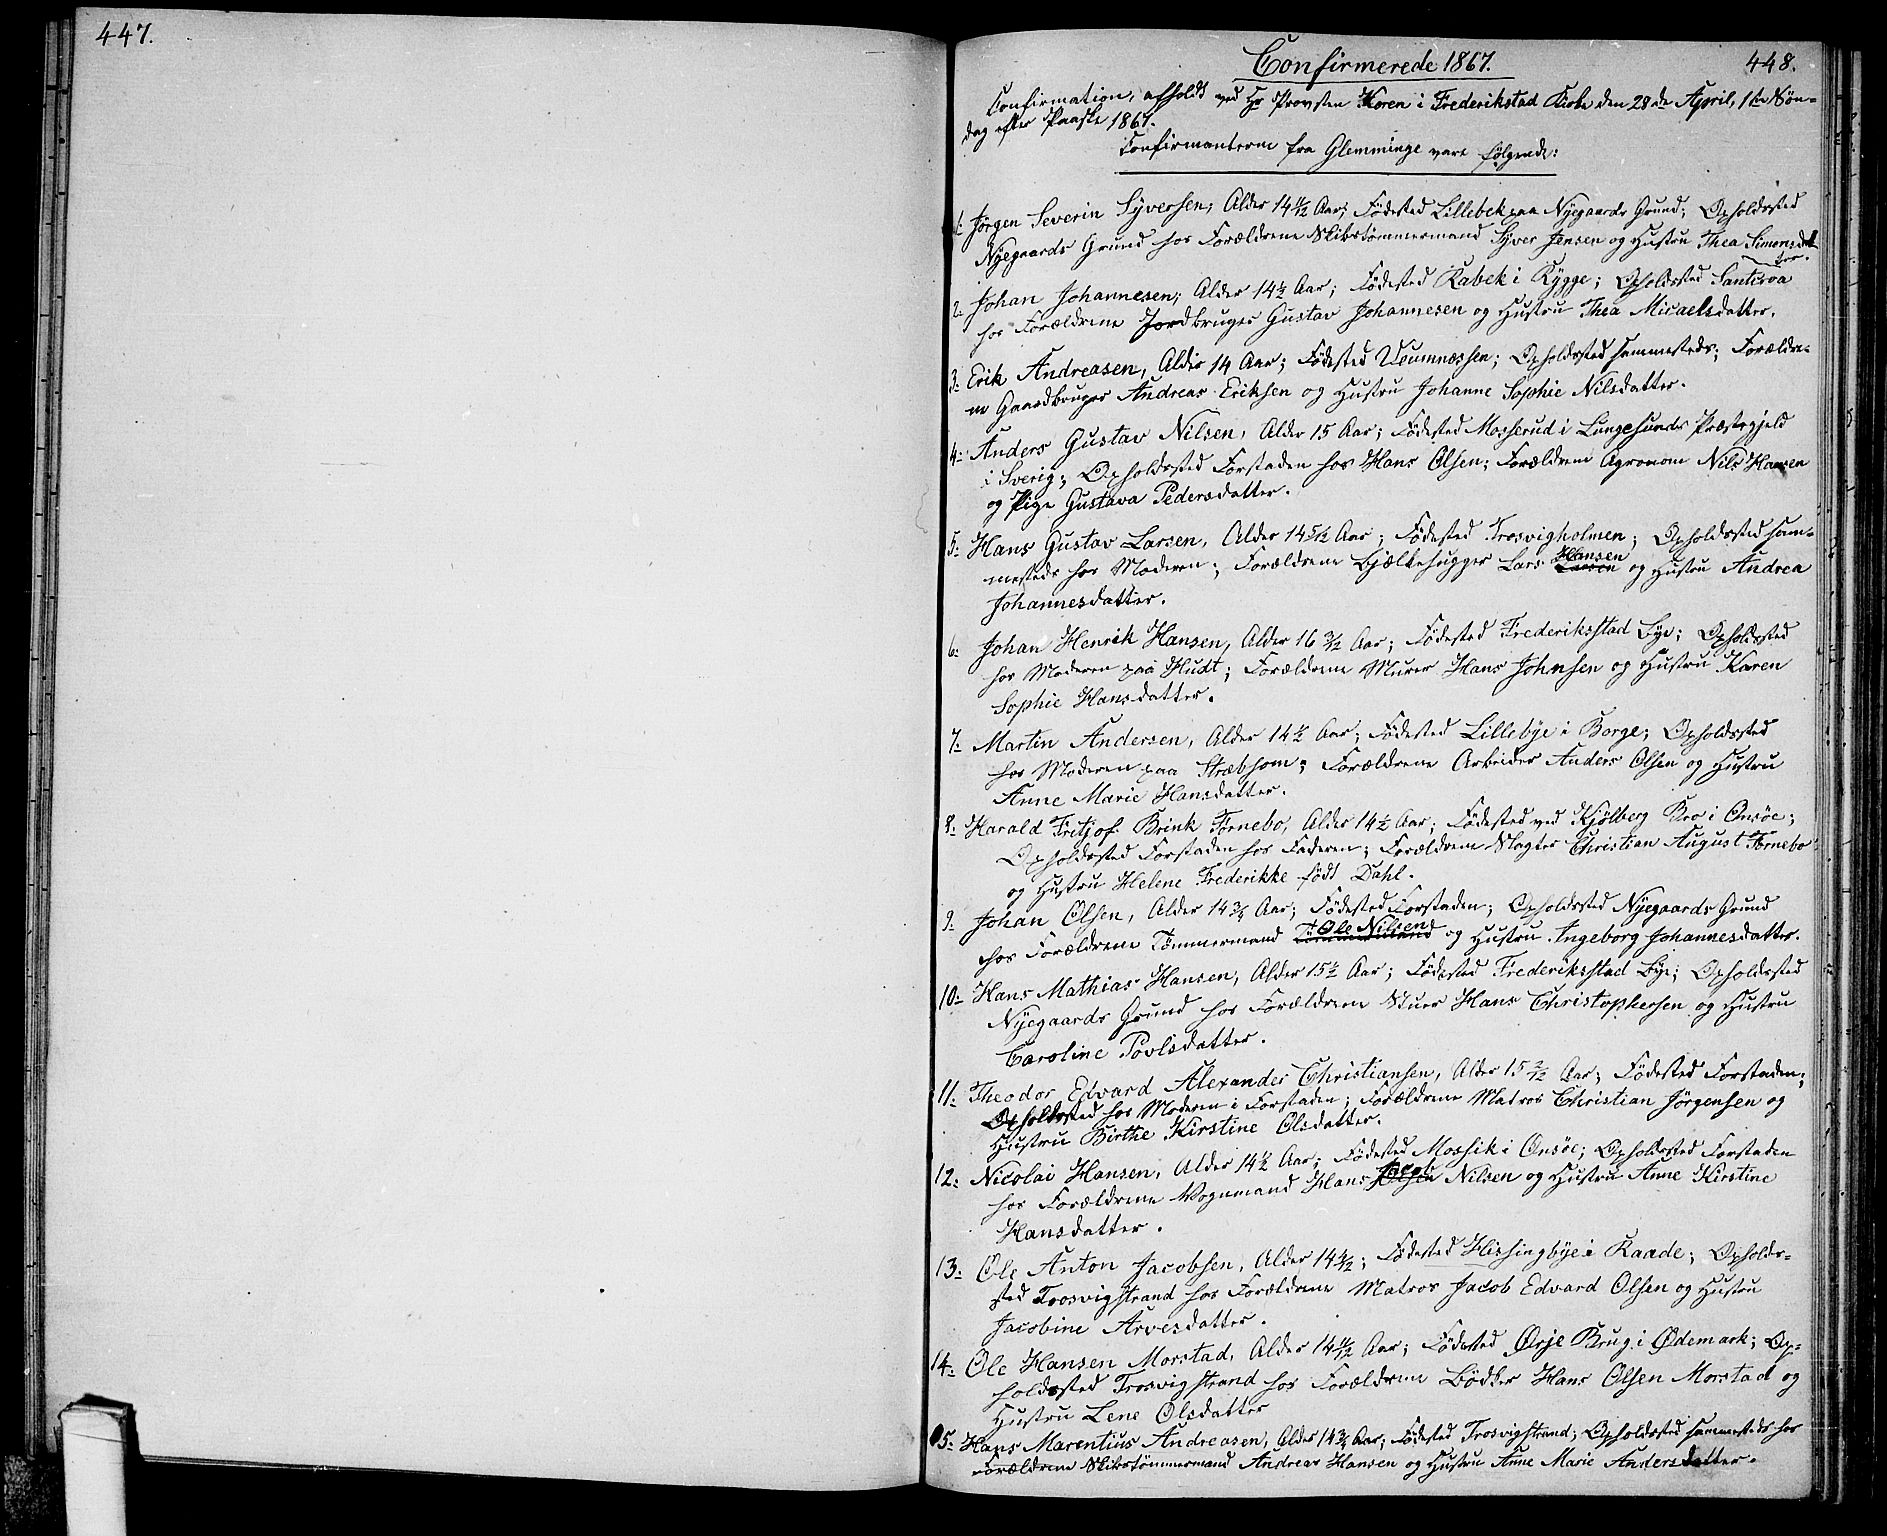 447.
Confirmerede 1867.
448.
Confirmation, afholdt ved Hr Provsten Koren i Frederikstad Kirke den 28de April, 1ste Søn-
dag efter Paaske 1867.
Confirmanterne fra Glemminge vare følgende:
1. Jørgen Severin Syversen; Alder 14 11/12 Aar; Fødested Lillebek paa Nyegaards Grund; Opholdssted
Nyegaards Grund hos Forældrene Skibstømmermand Syver Jensen og Hustru Thea Simonsdat-
ter.
2. Johan Johannesen; Alder 14½ Aar; Fødested Kabek i Rygge; Opholdssted
hos Forældrene Jordbruger Gustav Johannesen og Hustru Thea Micaelsdatter.
3: Erik Andreasen, Alder 14 Aar; Fødested Veumnæssen; Opholdssted sammesteds; Forældre-
ne Gaardbruger Andreas Eriksen og Hustru Johanne Sophie Nilsdatter.
4: Anders Gustav Nilsen, Alder 15 Aar; Fødested Mosserud i Lungesunds Præstegjeld
i Sverig; Opholdssted Forstaden hos Hans Olsen; Forældrene Agronom Nils Hansen
og Pige Gustava Pedersdatter.
5: Hans Gustav Larsen, Alder 14 5/12 Aar; Fødested Trosvigholmen; Opholdssted sam-
mesteds hos Moderen; Forældrene Bjælkehugger Lars Hansen Larsen og Hustru Andrea
Johannesdatter.
6: Johan Henrik Hansen, Alder 16 Aar; Fødested Frederiksstad Bye; Opholdssted
hos Moderen paa Hudt; Forældrene Murer Hans Johnsen og Hustru Karen
Sophie Hansdatter.
7: Martin Andersen, Alder 14½ Aar; Fødested Lillebye i Borge; Opholdssted
hos Moderen paa Stræbsom; Forældrene Arbeider Anders Olsen og Hustru
Anne Marie Hansdatter.
8: Harald Fritjof Brink Tørnebo, Alder 14½ Aar; Fødested ved Kjølberg Bro i Onsøe;
Opholdssted Forstaden hos Faderen; Forældrene Slagter Christian August Tørnebo
og Hustru Helene Frederikke født Dahl.
9. Johan Olsen, Alder 14¾ Aar; Fødested Forstaden; Opholdssted Nyegaards Grund
hos Forældrene Tømmermand Ole Nilsen Tømmermand og Hustru Ingeborg Johannesdatter.
10: Hans Mathias Hansen, Alder 15½ Aar; Fødested Frederiksstad Bye; Opholdssted
Nyegaards Grund hos Forældrene Stuer Hans Christophersen og Hustru
Caroline Povlsdatter.
11: Theodor Edvard Alexander Christiansen, Alder 15 2/12 Aar; Fødested Forstaden;
Opholdssted hos Moderen i Forstaden; Forældrene Matros Christian Jørgensen og
Hustru Birthe Kirstine Olsdatter.
12: Nicolai Hansen, Alder 14½ Aar; Fødested Mossik i Onsøe; Opholdssted Forstaden
hos Forældrene Vognmand Hans Jacob Nilsen og Hustru Anne Kirstine
Hansdatter.
13: Ole Anton Jacobsen, Alder 14; Fødested Hissingbye i Raade; Opholds-
sted Trosvigstrand hos Forældrene Matros Jacob Edvard Olsen og Hustru
Jacobine Arvesdatter.
14: Ole Hansen Morstad, Alder 14 11/12 Aar; Fødested Ørje Brug i Ødemark; Op-
holdssted Trosvigstrand hos Forældrene Bødker Hans Olsen Morstad og
Hustru Lene Olsdatter
15: Hans Marentius Andreasen, Alder 14¾ Aar; Fødested Trosvigstrand; Opholdssted sammesteds hos
Forældrene Skibstømmermand Andreas Hansen og Hustru Anne Marie Andersdatter.